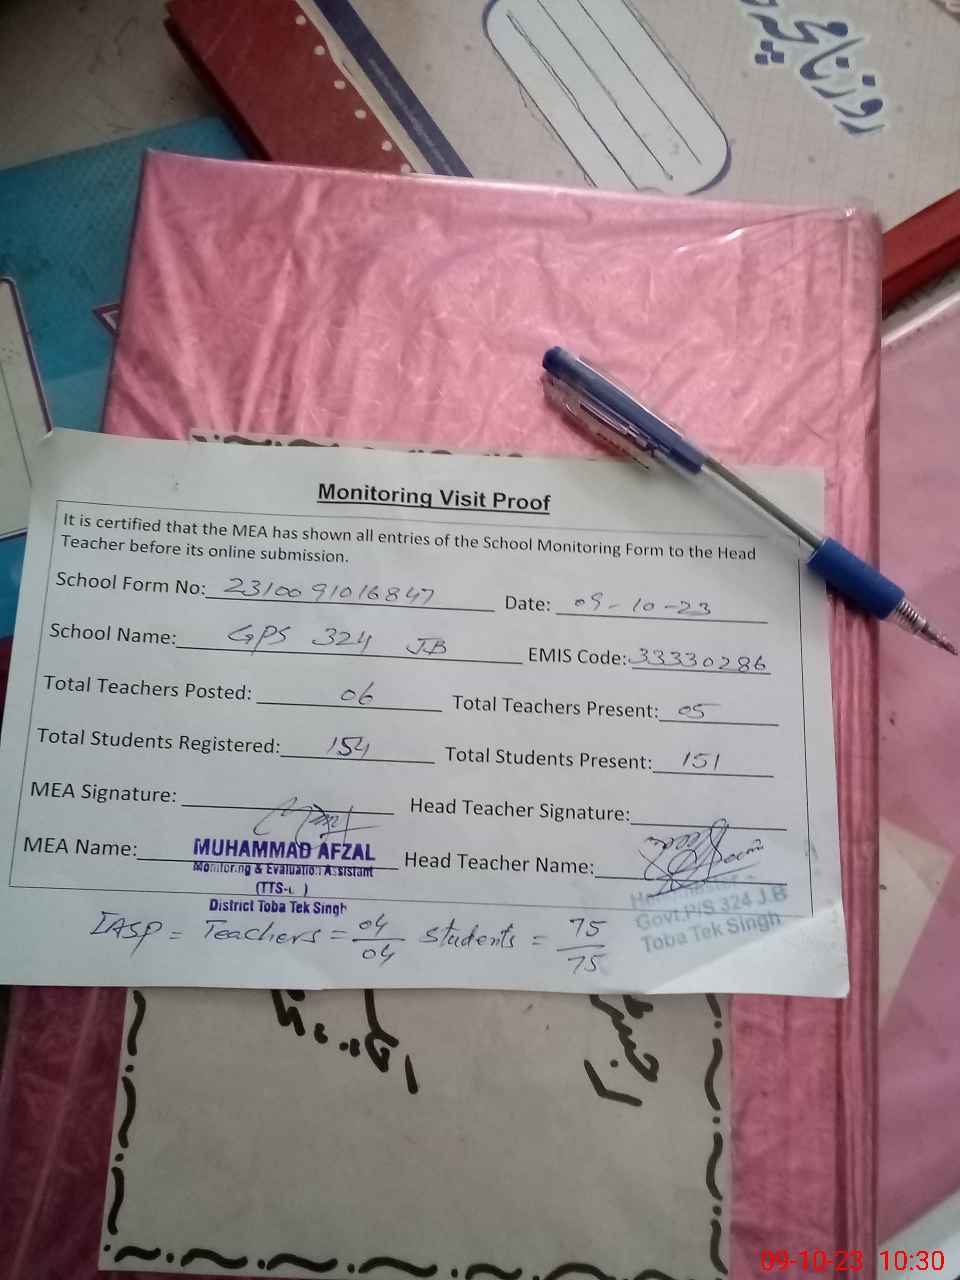 روزنامچہ
Monitoring Visit Proof
It is certified that the MEA has shown all entries of the School Monitoring Form to the Head
Teacher before its online submission.
School Form No: 2310091016847 Date: 09-10-23
School Name: GPS 324 JB EMIS Code: 33330286
Total Teachers Posted: 06 Total Teachers Present: 05
Total Students Registered: 154 Total Students Present: 151
MEA Signature: Head Teacher Signature:
MEA Name: MUHAMMAD AFZAL Head Teacher Name:
Monitoring & Evaluation Assistant
District Toba Tek Singh
Govt.P/S 324 J.B
Toba Tek Singh
IASP = Teachers = 04/04 Students = 75/75
09-10-23 10:30